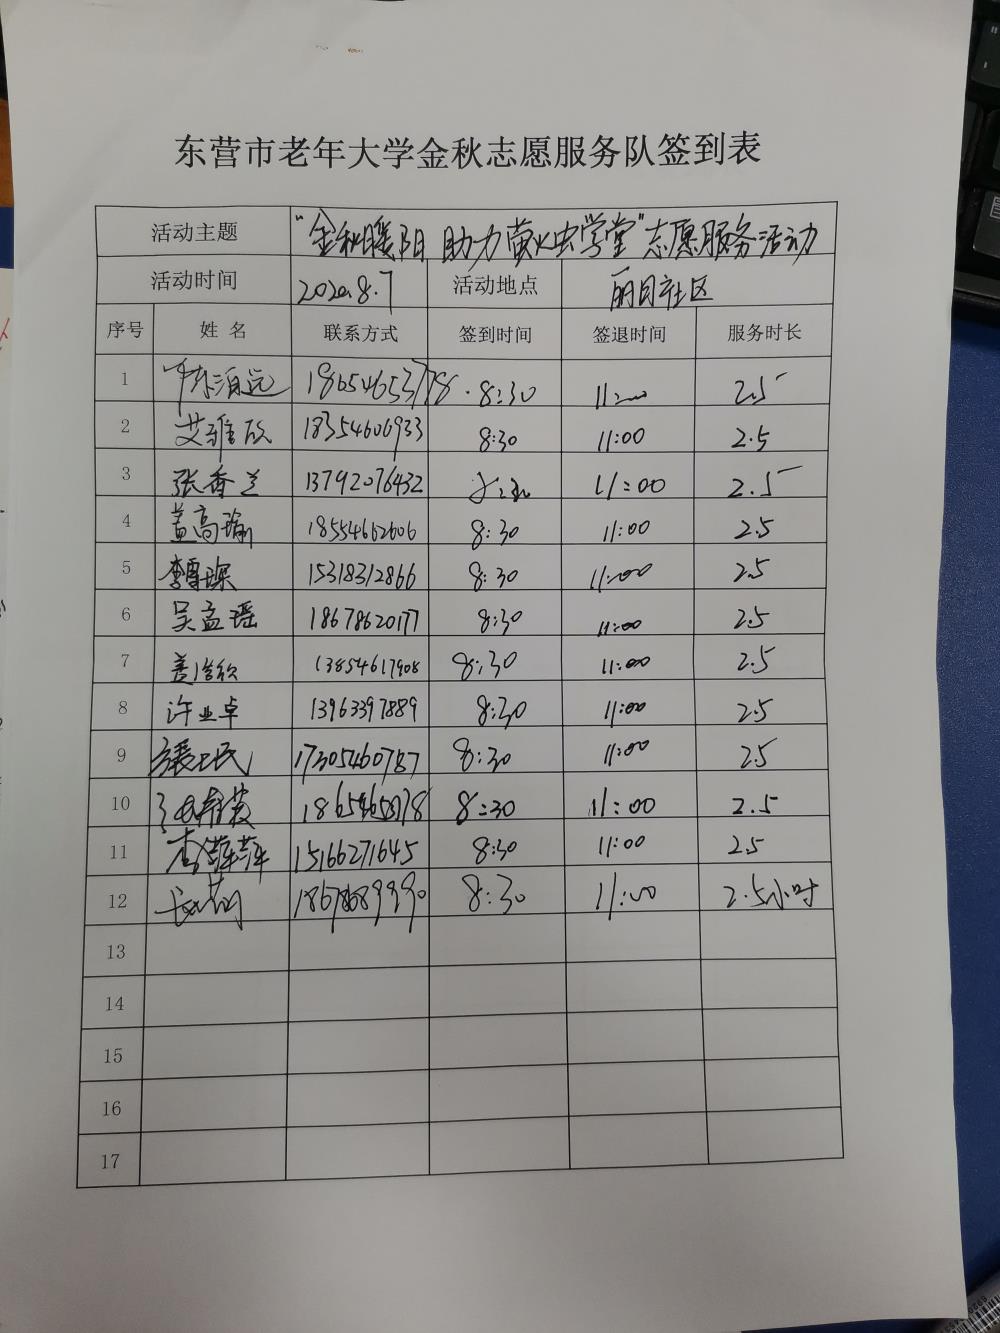 东营市老年大学金秋志愿服务队签到表
活动主题 "金秋暖阳 助力萤火虫学堂"志愿服务活动
活动时间 2020.8.7 活动地点 丽日社区
序号 姓名 联系方式 签到时间 签退时间 服务时长
1 18654653778 8:30 11:00 2.5
2 艾维欣 18354606933 8:30 11:00 2.5
3 张香兰 13792076432 8:30 11:00 2.5
4 盖高瑜 18554662606 8:30 11:00 2.5
5 15318312866 8:30 11:00 2.5
6 吴孟瑶 18678620177 8:30 11:00 2.5
7 13854617908 8:30 11:00 2.5
8 许业卓 13963397889 8:30 11:00 2.5
9 17305460787 8:30 11:00 2.5
10 8:30 11:00 2.5
11 李萍萍 15166271645 8:30 11:00 2.5
12 8:30 11:00 2.5小时
13
14
15
16
17